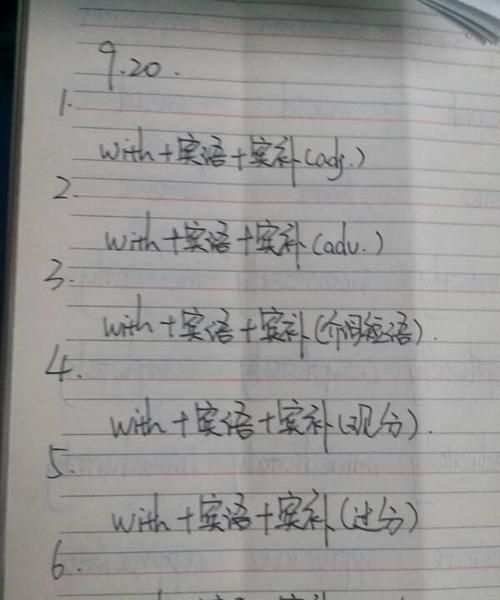 9.20.
1.
with+宾语+宾补(adj.)
2.
with+宾语+宾补(adv.)
3.
with+宾语+宾补(介词短语).
4.
with+宾语+宾补(现分).
5.
with+宾语+宾补(过分)
6.